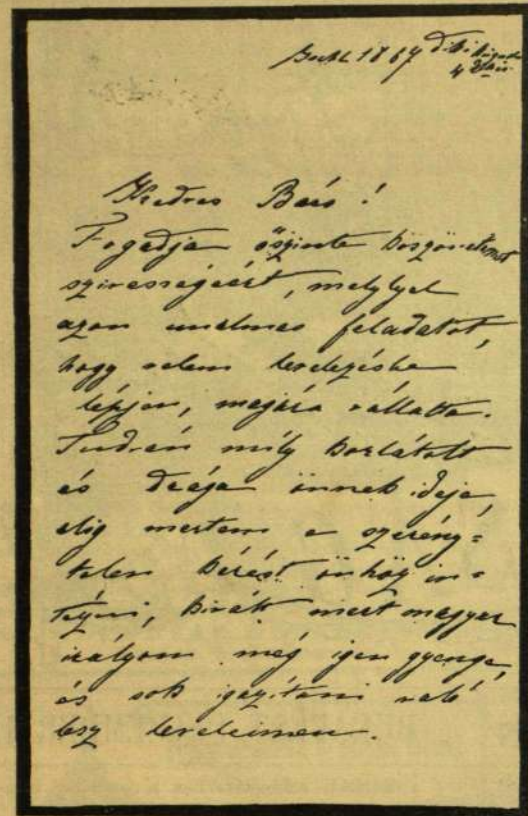 Ischl 1867
4
Kedves Báró!
Fogadja őszinte köszönetemet
szivességéért, melylyel
azon unalmas feladatot,
hogy velem levelezésbe
lépjen, magára vállalta.
Tudván mily korlátolt
és drága önnek ideje,
alig mertem e szerény=
telen kérést önhöz in=
tézni, kivált mert magyar
irályom még igen gyenge,
és sok igazítani való
lesz leveleimen.